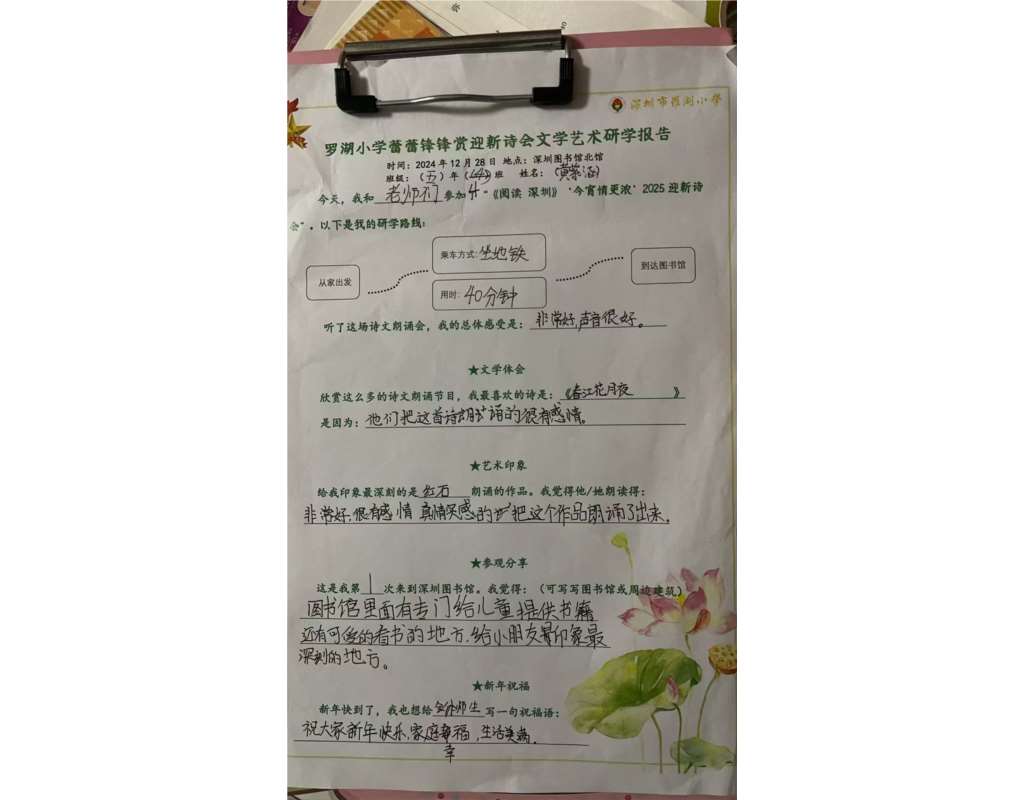 深圳市罗湖小学
罗湖小学蕾蕾锋锋赏迎新诗会文学艺术研学报告
时间：2024年12月28日 地点：深圳图书馆北馆
班级：（五）年（4）班 姓名：（黄 涵）
今天，我和 老师们 参加 “《阅读 深圳》‘今宵情更浓’2025迎新诗
会”。以下是我的研学路线：
从家出发
乘车方式：坐地铁
用时：40分钟
到达图书馆
听了这场诗文朗诵会，我的总体感受是：非常好，声音很好。
★文学体会
欣赏这么多的诗文朗诵节目，我最喜欢的诗是：《春江花月夜》
是因为：他们把这首诗朗诵的很有感情。
★艺术印象
给我印象最深刻的是 红石 朗诵的作品。我觉得他/她朗读得：
非常好，很有感情 真情实感的 把这个作品朗诵了出来。
★参观分享
这是我第1次来到深圳图书馆。我觉得：（可写写图书馆或周边建筑）
图书馆里面有专门给儿童提供书籍
还有可爱的看书的地方，给小朋友 印象最
深刻的地方。
★新年祝福
新年快到了，我也想给 全体师生 写一句祝福语：
祝大家新年快乐，家庭幸福，生活美满。